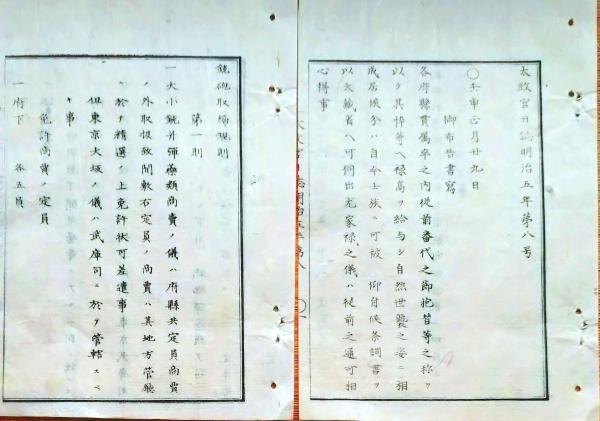 太政官日誌明治五年第八号
〇壬申正月廿九日
御布告書寫
各府縣貫属卒之内従前番代之節抱替等之称ヲ
以テ其悴等ヘ禄高ヲ給与シ自然世襲之姿ニ相
成居候分ハ自今士族ニ可被 仰付候条調書ヲ
以大蔵省ヘ可伺出尤家禄之儀ハ従前之通可相
心得事
銃砲取締規則
第一則
一大小銃并弾薬類商賣ノ儀ハ府縣共定員商賣
ノ外取扱致間敷右定員ノ商賣ハ其地方管廳
ニ於テ精選ノ上免許状可差遣事
但東京大坂ノ儀ハ武庫司ニ於テ管轄スヘ
キ事
免許商賣ノ定員
一府下 各五員